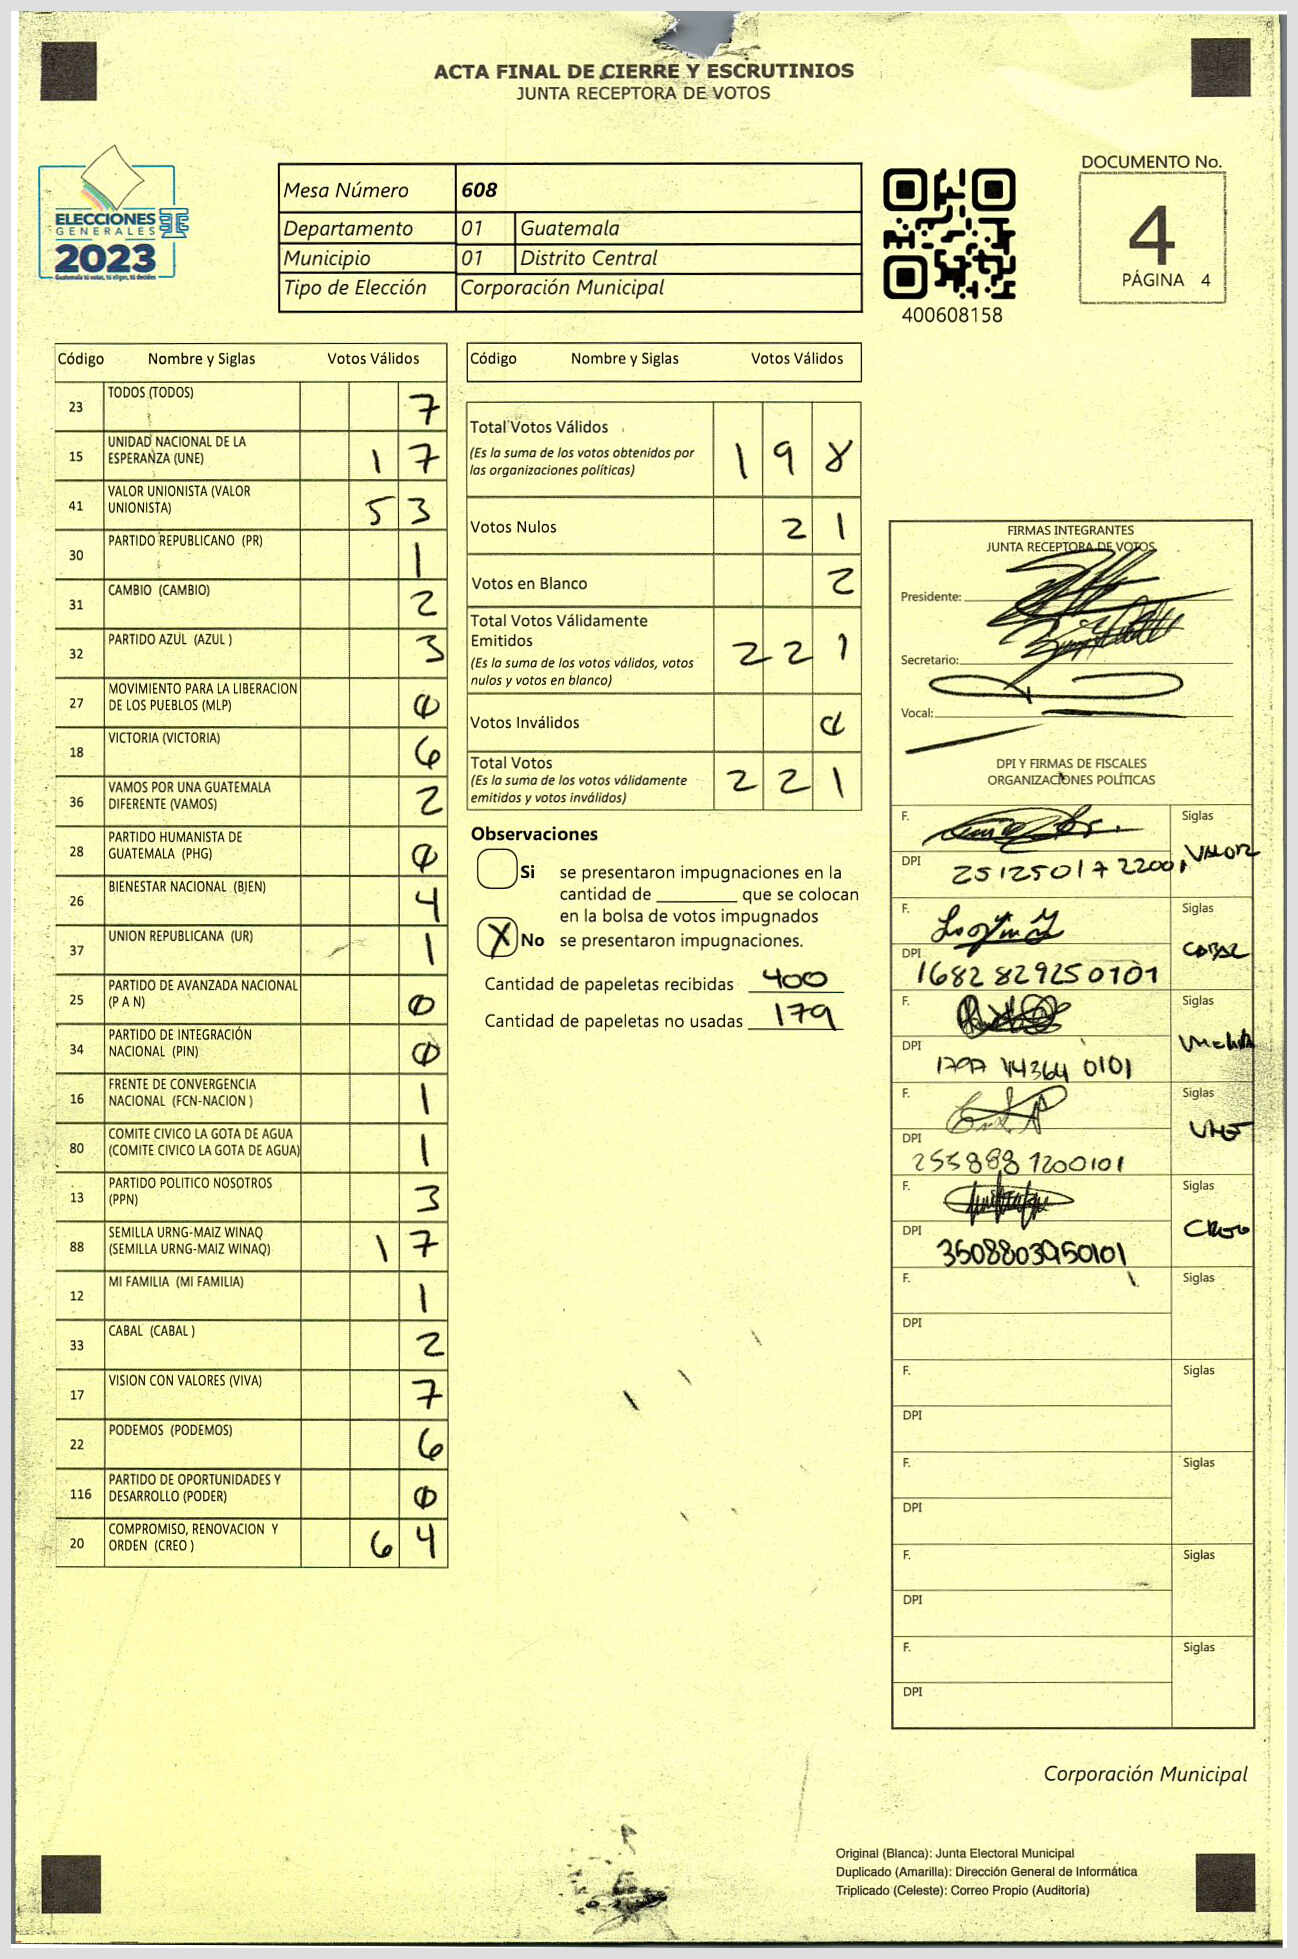 ACTA FINAL DE CIERRE Y ESCRUTINIOS
JUNTA RECEPTORA DE VOTOS
ELECCIONES
GENERALES
2023
Guatemala tú votas, tú eliges, tú decides
Mesa Número 608
Departamento 01 Guatemala
Municipio 01 Distrito Central
Tipo de Elección Corporación Municipal
400608158
DOCUMENTO No.
4
PÁGINA 4
Código Nombre y Siglas Votos Válidos
23 TODOS (TODOS) 7
15 UNIDAD NACIONAL DE LA
ESPERANZA (UNE) 1 7
41 VALOR UNIONISTA (VALOR
UNIONISTA) 5 3
30 PARTIDO REPUBLICANO (PR) 1
31 CAMBIO (CAMBIO) 2
32 PARTIDO AZUL (AZUL ) 3
27 MOVIMIENTO PARA LA LIBERACION
DE LOS PUEBLOS (MLP) 0
18 VICTORIA (VICTORIA) 6
36 VAMOS POR UNA GUATEMALA
DIFERENTE (VAMOS) 2
28 PARTIDO HUMANISTA DE
GUATEMALA (PHG) 0
26 BIENESTAR NACIONAL (BIEN) 4
37 UNION REPUBLICANA (UR) 1
25 PARTIDO DE AVANZADA NACIONAL
(P A N) 0
34 PARTIDO DE INTEGRACIÓN
NACIONAL (PIN) 0
16 FRENTE DE CONVERGENCIA
NACIONAL (FCN-NACION ) 1
80 COMITE CIVICO LA GOTA DE AGUA
(COMITE CIVICO LA GOTA DE AGUA) 1
13 PARTIDO POLITICO NOSOTROS
(PPN) 3
88 SEMILLA URNG-MAIZ WINAQ
(SEMILLA URNG-MAIZ WINAQ) 1 7
12 MI FAMILIA (MI FAMILIA) 1
33 CABAL (CABAL ) 2
17 VISION CON VALORES (VIVA) 7
22 PODEMOS (PODEMOS) 6
116 PARTIDO DE OPORTUNIDADES Y
DESARROLLO (PODER) 0
20 COMPROMISO, RENOVACION Y
ORDEN (CREO ) 6 4
Código Nombre y Siglas Votos Válidos
Total Votos Válidos
(Es la suma de los votos obtenidos por
las organizaciones políticas) 1 9 8
Votos Nulos 2 1
Votos en Blanco 2
Total Votos Válidamente
Emitidos
(Es la suma de los votos válidos, votos
nulos y votos en blanco) 2 2 1
Votos Inválidos 0
Total Votos
(Es la suma de los votos válidamente
emitidos y votos inválidos) 2 2 1
Observaciones
Si se presentaron impugnaciones en la
cantidad de ________ que se colocan
en la bolsa de votos impugnados
X No se presentaron impugnaciones.
Cantidad de papeletas recibidas 400
Cantidad de papeletas no usadas 179
FIRMAS INTEGRANTES
JUNTA RECEPTORA DE VOTOS
Presidente:
Secretario:
Vocal:
DPI Y FIRMAS DE FISCALES
ORGANIZACIONES POLÍTICAS
F. Siglas
VALOR
DPI 2512501722001
F. Siglas
CABAL
DPI 1682829250101
F. Siglas
DPI 0101
F. Siglas
UNE
DPI 2558881200101
F. Siglas
CREO
DPI 3508803950101
F. Siglas
DPI
F. Siglas
DPI
F. Siglas
DPI
F. Siglas
DPI
F. Siglas
DPI
Corporación Municipal
Original (Blanca): Junta Electoral Municipal
Duplicado (Amarilla): Dirección General de Informática
Triplicado (Celeste): Correo Propio (Auditoría)